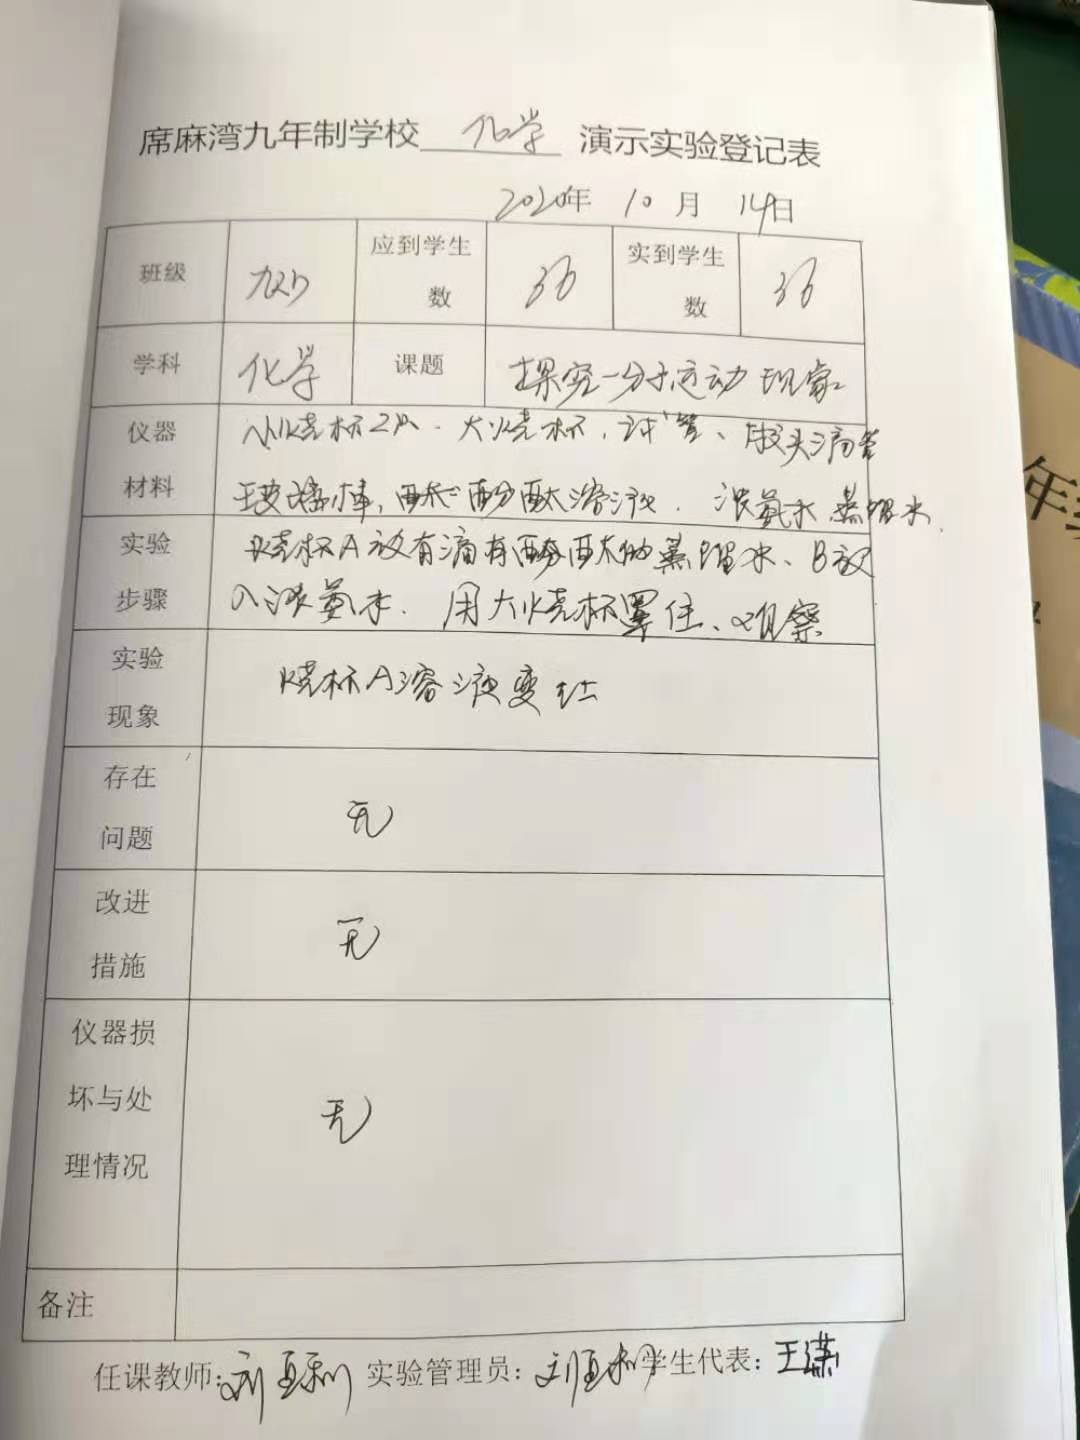 席麻湾九年制学校 化学 演示实验登记表
2020年 10 月 14日
班级 应到学生数 36 实到学生数 36
学科 化学 课题 探究一分子运动现象
仪器材料 小烧杯2只、大烧杯、试管、胶头滴管
玻璃棒,酚酞溶液、浓氨水 蒸馏水.
实验步骤 烧杯A放有滴有酚酞的蒸馏水、B放
入浓氨水. 用大烧杯罩住、观察
实验现象 烧杯A溶液变红
存在问题 无
改进措施 无
仪器损坏与处理情况 无
备注
任课教师: 刘亚利 实验管理员: 刘亚利 学生代表: 王潇
年